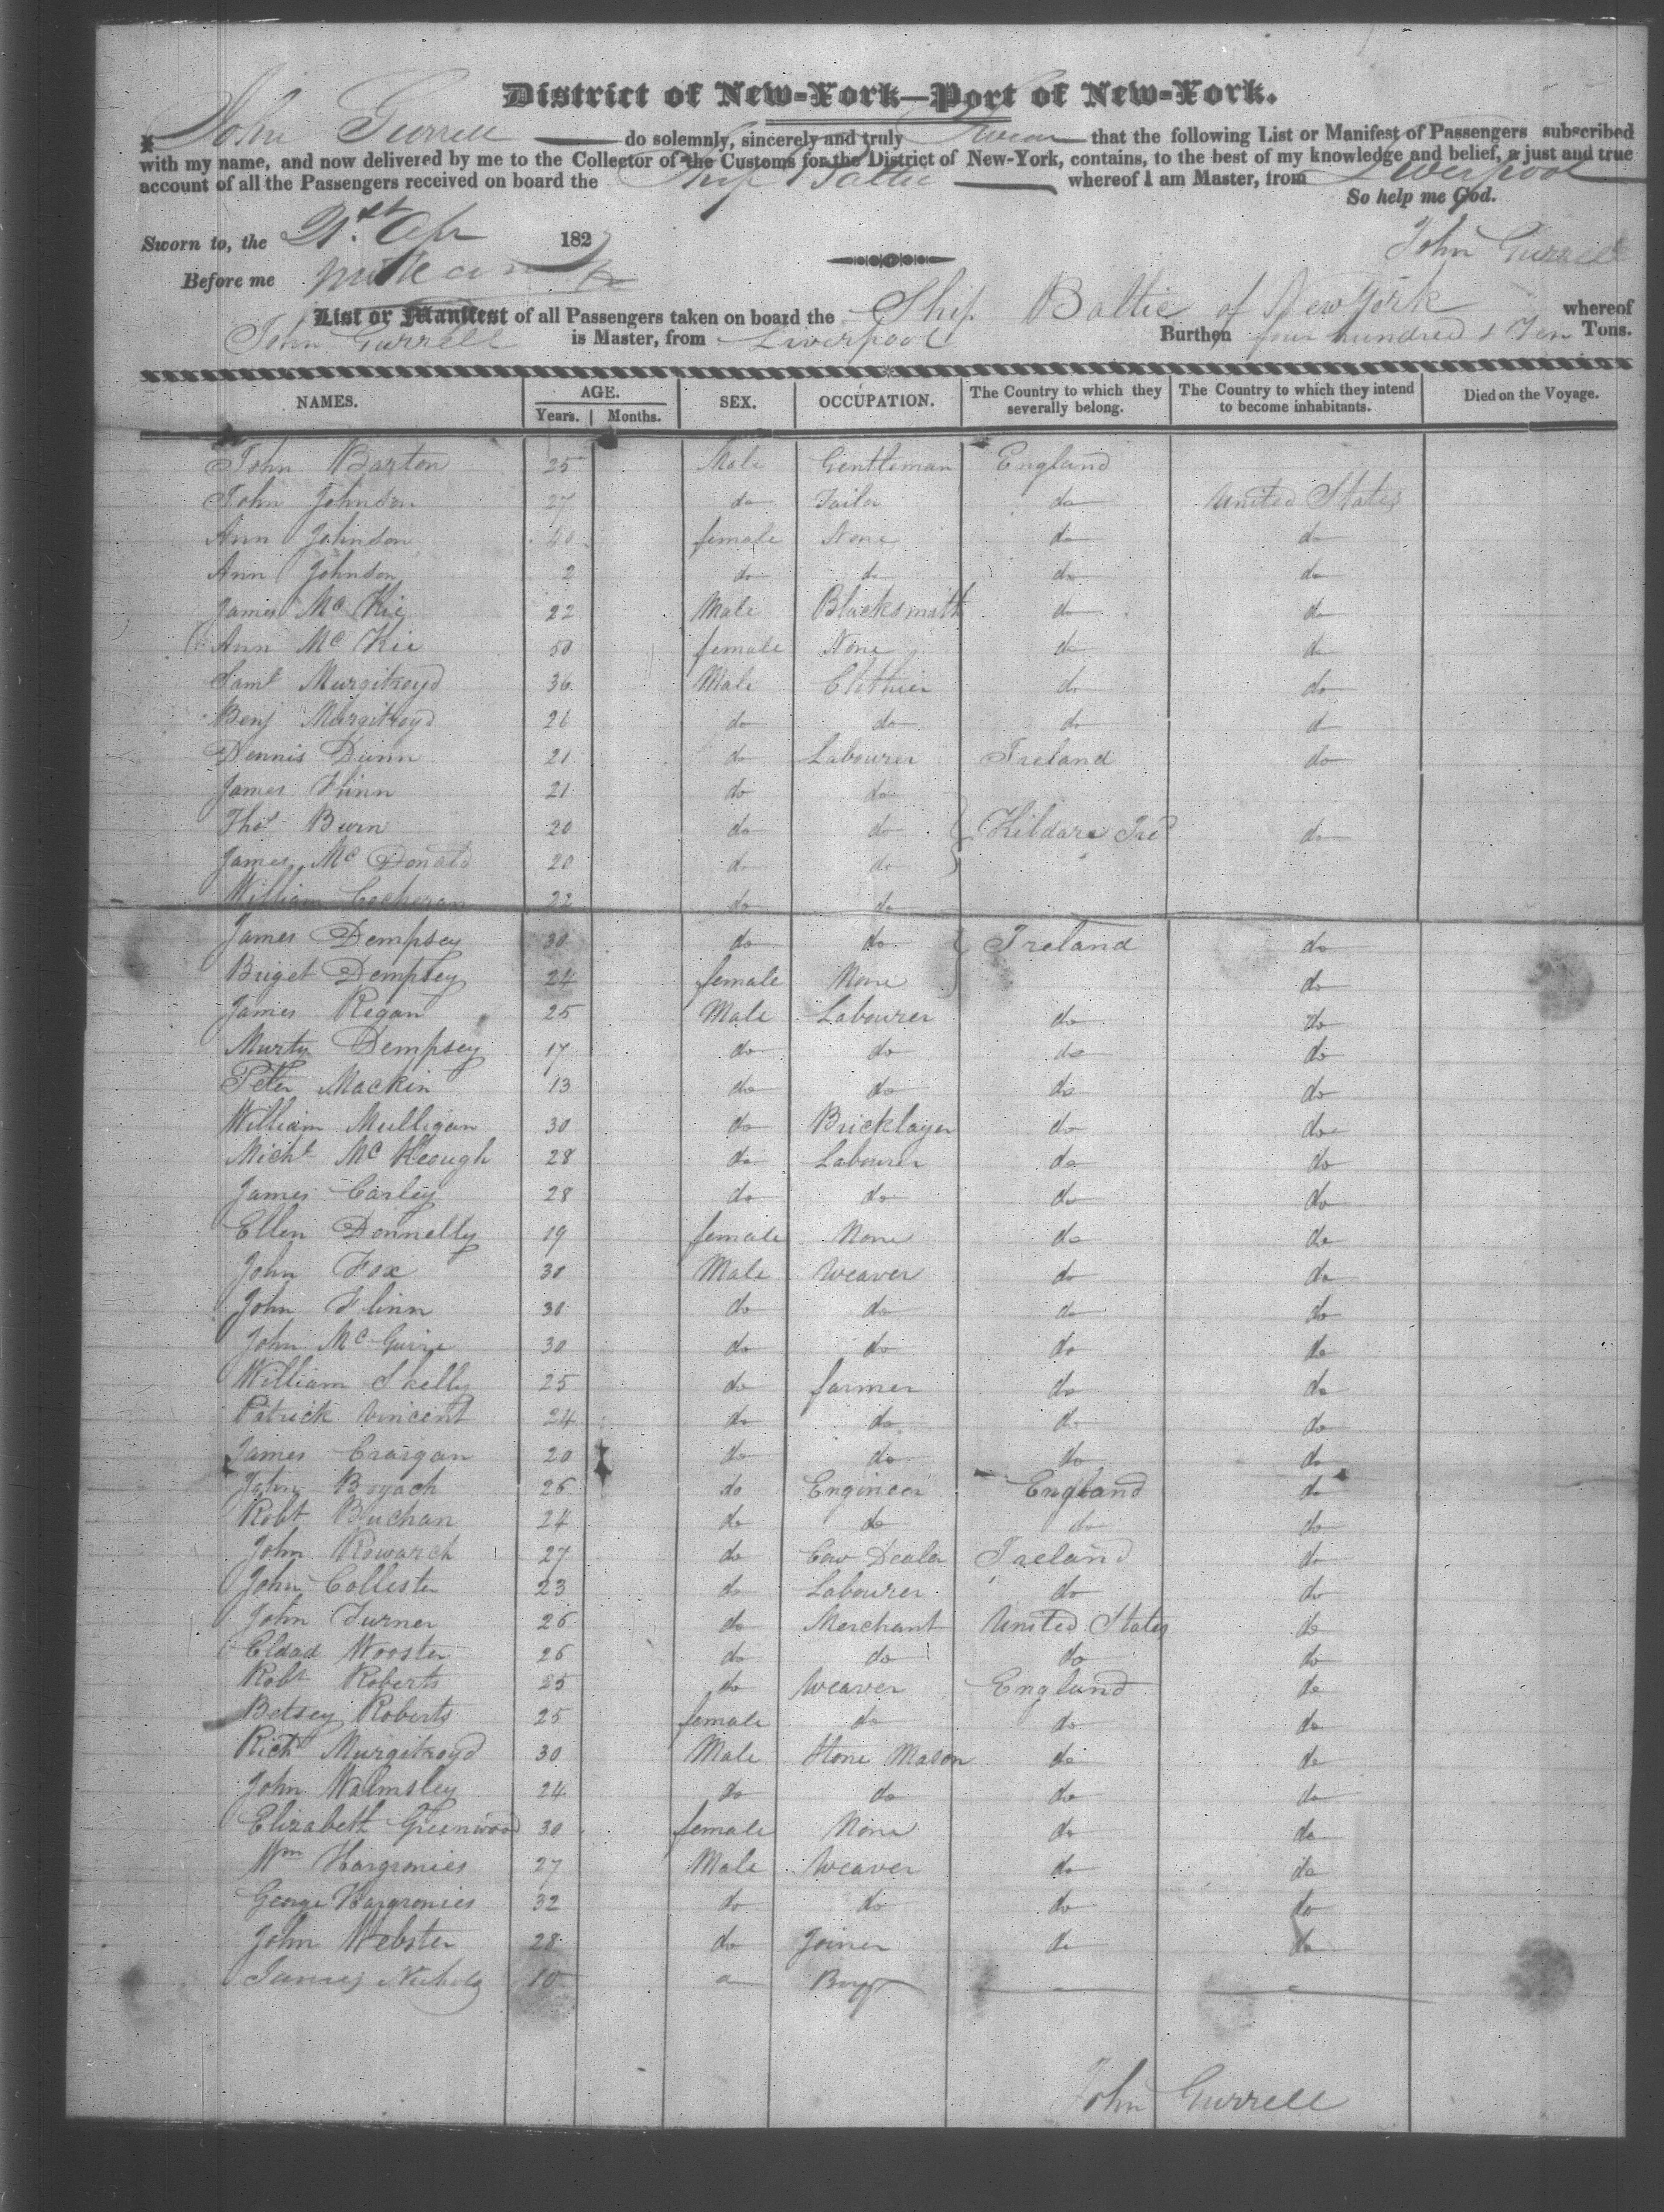 District of New-York—Port of New-York.
John Gurrell do solemnly, sincerely and truly Swear that the following List or Manifest of Passengers subscribed
with my name, and now delivered by me to the Collector of the Customs for the District of New-York, contains, to the best of my knowledge and belief, a just and true
account of all the Passengers received on board the Ship Baltic whereof I am Master, from Liverpool
So help me God.
Sworn to, the 21st Apr 182
John Gurrell
Before me
List or Manifest of all Passengers taken on board the Ship Baltic of New York whereof
John Gurrell is Master, from Liverpool Burthen four hundred & Ten Tons.
NAMES. AGE. SEX. OCCUPATION. The Country to which they severally belong. The Country to which they intend to become inhabitants. Died on the Voyage.
Years. Months.
John Barton 25 Male Gentleman England
John Johnson 27 do Tailor do United States
Ann Johnson 40 female None do do
Ann Johnson 2 do do do do
James Mc Kie 22 Male Blacksmith do do
Ann Mc Kie 50 female None do do
Saml Murgitroyd 36 Male Clothier do do
Benj Murgitroyd 26 do do do do
Dennis Dunn 21 do Labourer Ireland do
James Flinn 21 do do
Thos Burn 20 do do Kildare Ire do
James Mc Donald 20 do do
William Cocheran 22 do do
James Dempsey 30 do do Ireland do
Briget Dempsey 24 female None do
James Regan 25 Male Labourer do do
Murty Dempsey 17 do do do do
Peter Mackin 13 do do do do
William Mulligan 30 do Bricklayer do do
Michl Mc Keough 28 do Labourer do do
James Carley 28 do do do do
Ellen Donnelly 19 female None do do
John Fox 30 Male Weaver do do
John Flinn 30 do do do do
John Mc Guire 30 do do do do
William Skelly 25 do farmer do do
Patrick Vincent 24 do do do do
James Craigan 20 do do do do
John Boyach 26 do Engineer England do
Robt Buchan 24 do do do do
John Rowarch 27 do Cow Dealer Ireland do
John Collister 23 do Labourer do do
John Turner 26 do Merchant United States do
Eldad Wooster 26 do do do do
Robt Roberts 25 do Weaver England do
Betsey Roberts 25 female do do do
Richd Murgitroyd 30 Male Stone Mason do do
John Walmsley 24 do do do do
Elizabeth Greenwood 30 female None do do
Wm Hargronies 27 Male Weaver do do
George Hargronies 32 do do do do
John Webster 28 do Joiner do do
James Nichols 10 a Boy
John Gurrell